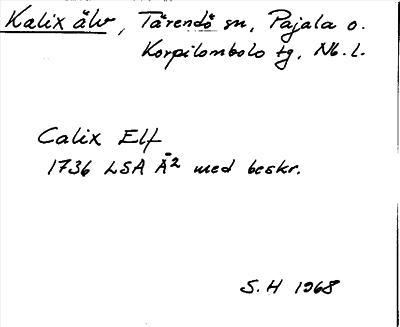 Kalix älv, Tärendö sn, Pajala o.
Korpilombolo tg, Nb. l.
Calix Elf
1736 LSA Ä2 med beskr.
S. H 1968